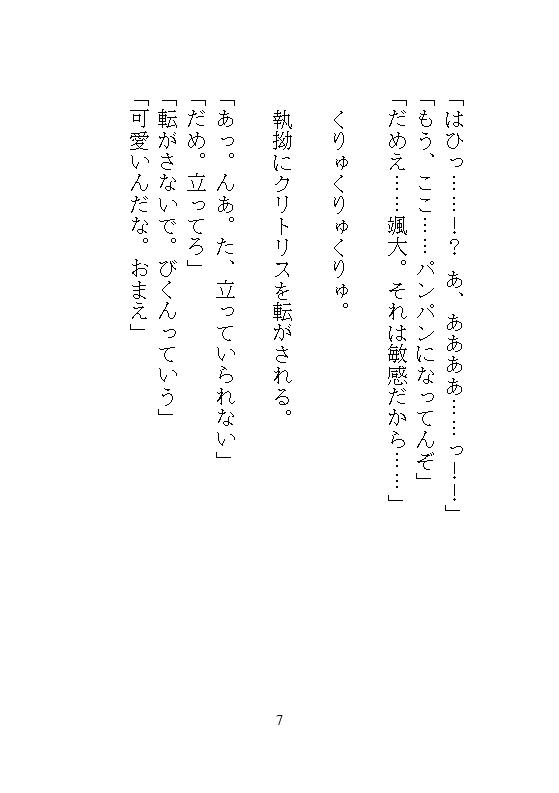 「はひっ……！？　あ、ああああ……っ！！」
「もう、ここ……パンパンになってんぞ」
「だめえ……颯大。それは敏感だから……」
くりゅくりゅくりゅ。
執拗にクリトリスを転がされる。
「あっ。んあ。た、立っていられない」
「だめ。立ってろ」
「転がさないで。びくんっていう」
「可愛いんだな。おまえ」
7